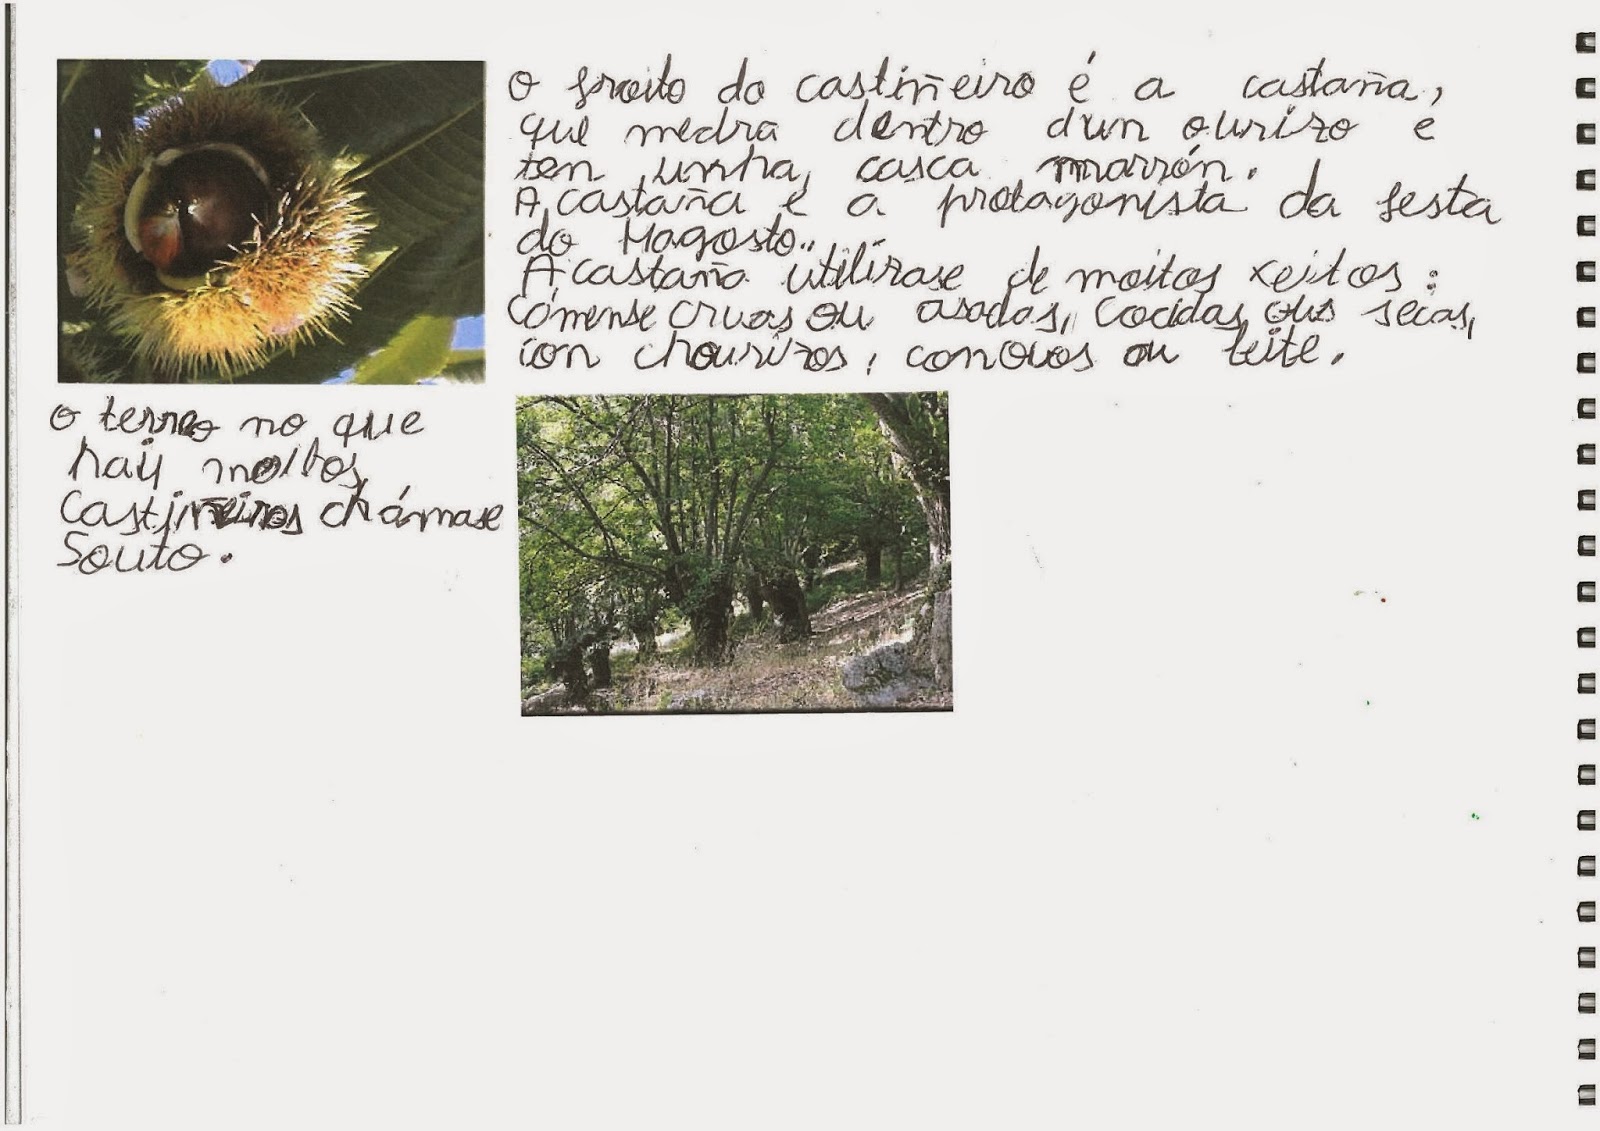 O froito do castiñeiro é a castaña,
que medra dentro dun ourizo e
ten unha casca marrón.
A castaña é a protagonista da festa
do Magosto..
A castaña utilízase de moitos xeitos:
Cómense cruas ou asadas, cocidas ous secas,
con chourizos, con ovos ou leite.
O terreo no que
hay moitos
castiñeiros chámase
Souto.